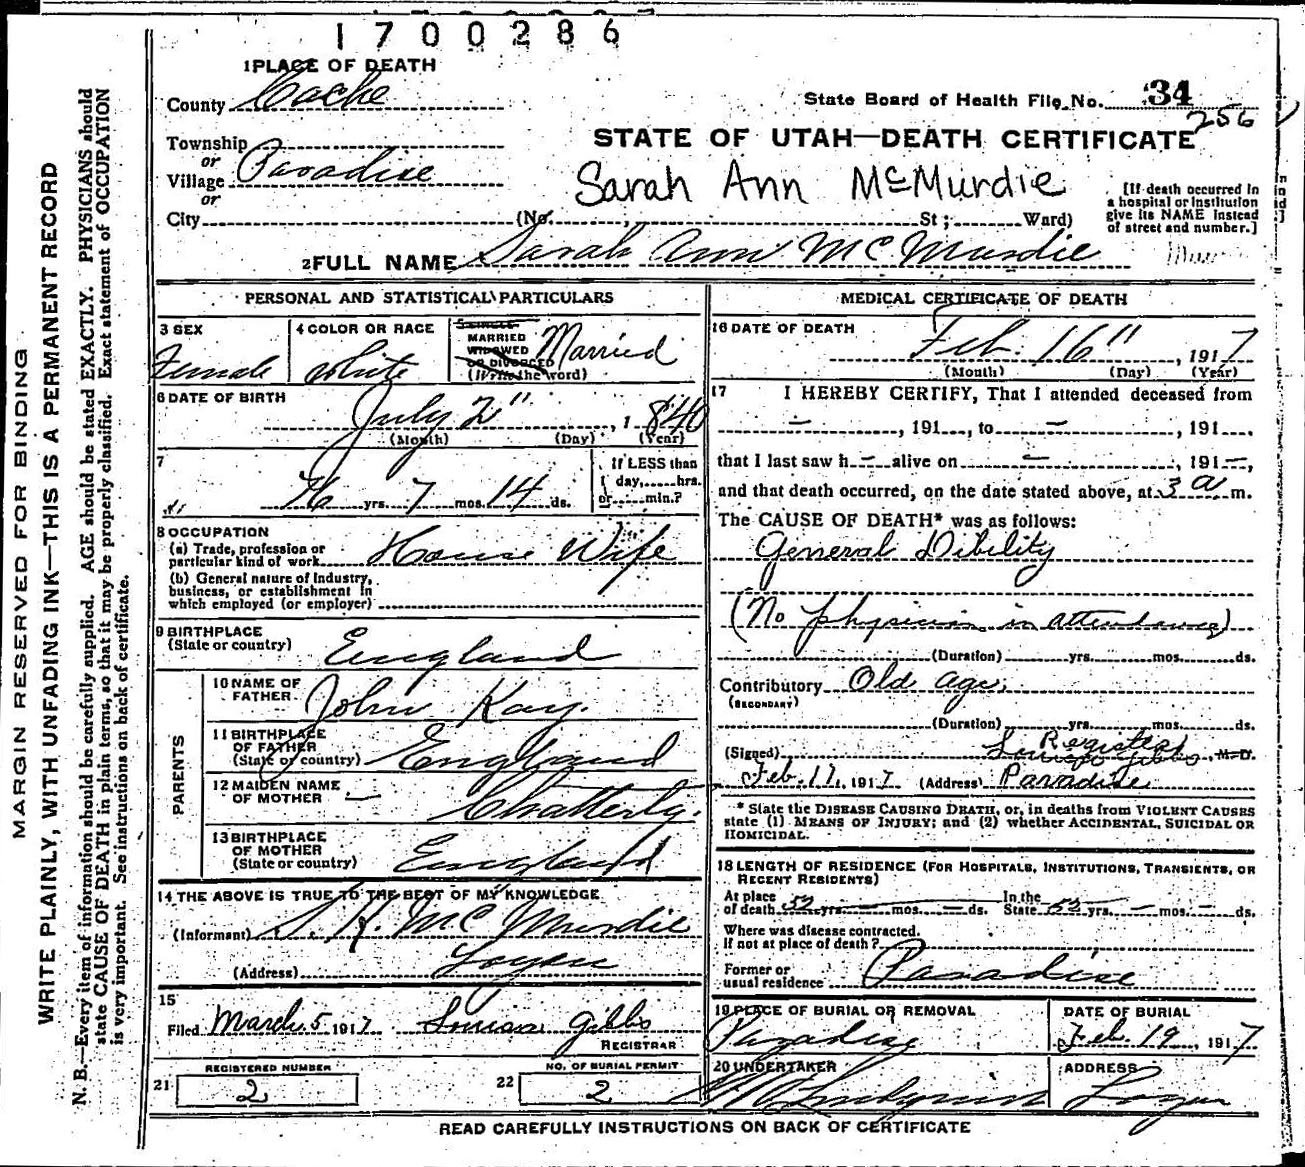 1700286
1 PLACE OF DEATH
County Cache
State Board of Health File No. 34
256
Township
or
Village Paradise
or
City (No. , St; Ward)
STATE OF UTAH—DEATH CERTIFICATE
Sarah Ann McMurdie
[If death occurred in
a hospital or institution
give its NAME instead
of street and number.]
2 FULL NAME Sarah Ann McMurdie
PERSONAL AND STATISTICAL PARTICULARS
3 SEX
Female
4 COLOR OR RACE
White
SINGLE
MARRIED
WIDOWED
OR DIVORCED
(Write the word)
Married
6 DATE OF BIRTH
July 2" , 1 840
(Month) (Day) (Year)
7
76 yrs. 7 mos. 14 ds.
If LESS than
1 day, hrs.
or min.?
8 OCCUPATION
(a) Trade, profession or
particular kind of work House Wife
(b) General nature of Industry,
business, or establishment in
which employed (or employer)
9 BIRTHPLACE
(State or country) England
PARENTS
10 NAME OF
FATHER John Kay.
11 BIRTHPLACE
OF FATHER
(State or country) England
12 MAIDEN NAME
OF MOTHER — Chatterty.
13 BIRTHPLACE
OF MOTHER
(State or country) England
14 THE ABOVE IS TRUE TO THE BEST OF MY KNOWLEDGE
(Informant) S. K. McMurdie
(Address) Logan
15
Filed March 5 1917 Louisa Gibbs
REGISTRAR
21 REGISTERED NUMBER
2
22 NO. OF BURIAL PERMIT
2
MEDICAL CERTIFICATE OF DEATH
16 DATE OF DEATH
Feb. 16" , 1917
(Month) (Day) (Year)
17 I HEREBY CERTIFY, That I attended deceased from
— , 191 , to — , 191 ,
that I last saw h — alive on — , 191 — ,
and that death occurred, on the date stated above, at 3 a m.
The CAUSE OF DEATH* was as follows:
General Dibility
(No physician in attendance)
(Duration) yrs. mos. ds.
Contributory Old age.
(SECONDARY)
(Duration) yrs. mos. ds.
Registrar
(Signed) Louisa Gibbs , M.D.
Feb. 17, 1917 (Address) Paradise
* State the DISEASE CAUSING DEATH, or, in deaths from VIOLENT CAUSES
state (1) MEANS OF INJURY; and (2) whether ACCIDENTAL, SUICIDAL OR
HOMICIDAL.
18 LENGTH OF RESIDENCE (FOR HOSPITALS, INSTITUTIONS, TRANSIENTS, OR
RECENT RESIDENTS)
At place
of death yrs. — mos. — ds. In the
State 53 yrs. — mos. — ds.
Where was disease contracted.
If not at place of death?
Former or
usual residence Paradise
19 PLACE OF BURIAL OR REMOVAL
Paradise
DATE OF BURIAL
Feb. 19 , 1917
20 UNDERTAKER
ADDRESS
Logan
READ CAREFULLY INSTRUCTIONS ON BACK OF CERTIFICATE
MARGIN RESERVED FOR BINDING
WRITE PLAINLY, WITH UNFADING INK—THIS IS A PERMANENT RECORD
N. B.—Every item of information should be carefully supplied. AGE should be stated EXACTLY. PHYSICIANS should
state CAUSE OF DEATH in plain terms, so that it may be properly classified. Exact statement of OCCUPATION
is very important. See instructions on back of certificate.